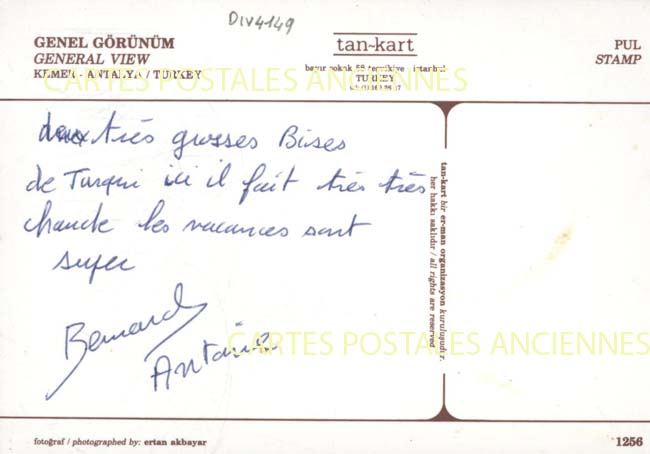 DIV4149
GENEL GÖRÜNÜM
GENERAL VIEW
KEMER - ANTALYA / TURKEY
tan-kart
istanbul
TURKEY
PUL
STAMP
CARTES POSTALES ANCIENNES
deux très grosses Bises
de Turqui ici il fait très très
chaude les vacances sont
super
Bernard
Antoine
tan-kart bir er-man organizasyon kuruluşudur.
her hakkı saklıdır / all rights are reserved
CARTES POSTALES ANCIENNES
fotoğraf / photographed by: ertan akbayar
1256